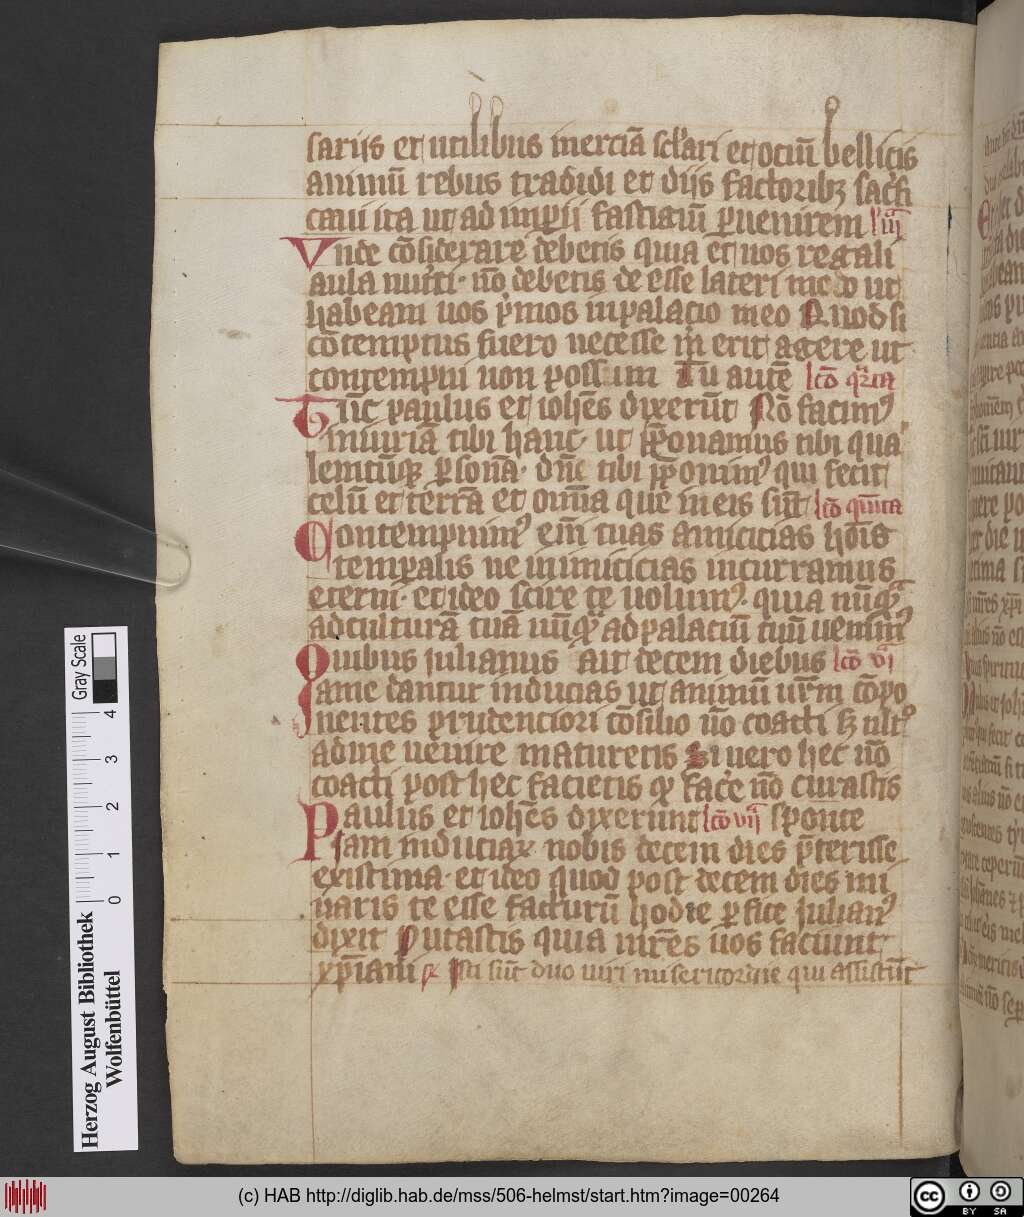 sarijs et utilibus inerciā sclari et ociū bellicis
animū rebus tradidi et diis factoribꝫ sacfi
caui ita ut ad imꝑii fastigiū ꝑuenirem l' iiij
Vnde cōsiderare debetis quia et uos regali
aula nutiti nō debetis deesse lateri meo ut
habeam uos pͥmos in palacio meo Quod si
cōtemptus fuero necesse m̄ erit agere ut
contempni non possum Tu autē lcō qͣrta
Tūc paulus et ioħes dixerūt Nō facimꝰ
iniuriā tibi hanc ut p̄ponamus tibi qua
lemcūqꝫ ꝑsonā dn̄e tibi p̄ponimꝰ qui fecit
celū et terrā et omīa que in eis sūt lcō quīta
Contempnimꝰ em̄ tuas amicicias hoīs
temꝑalis ne inimicicias incurramus
eterni et ideo scire te uolumꝰ quia nūqͣ
ad culturā tuā nūqͣ ad palaciū tuū uenimꝰ
Quibus iulianus ait decem diebus lcō vj
a me dantur inducias ut animū ur̄m cōpo
nentes prudenciori cōsilio nō coacti sꝫ ultͦ
ad me uenire maturetis Si uero hec nō
coacti post hec facietis qͣ facͤe nō curastis
Paulus et ioħes dixerunt lcō vij sponte
Iam induciaꝝ nobis decem dies p̄terisse
existima et ideo quod post decem dies mi
naris te esse facturū hodie ꝑfice julianꝰ
dixit Putastis quia mr̄es uos faciunt
xp̄iani R Isti sūt duo uiri misericordie qui assistūt
Gray Scale
4
3
2
1
0
Herzog August Bibliothek
Wolfenbüttel
(c) HAB http://diglib.hab.de/mss/506-helmst/start.htm?image=00264
cc BY SA